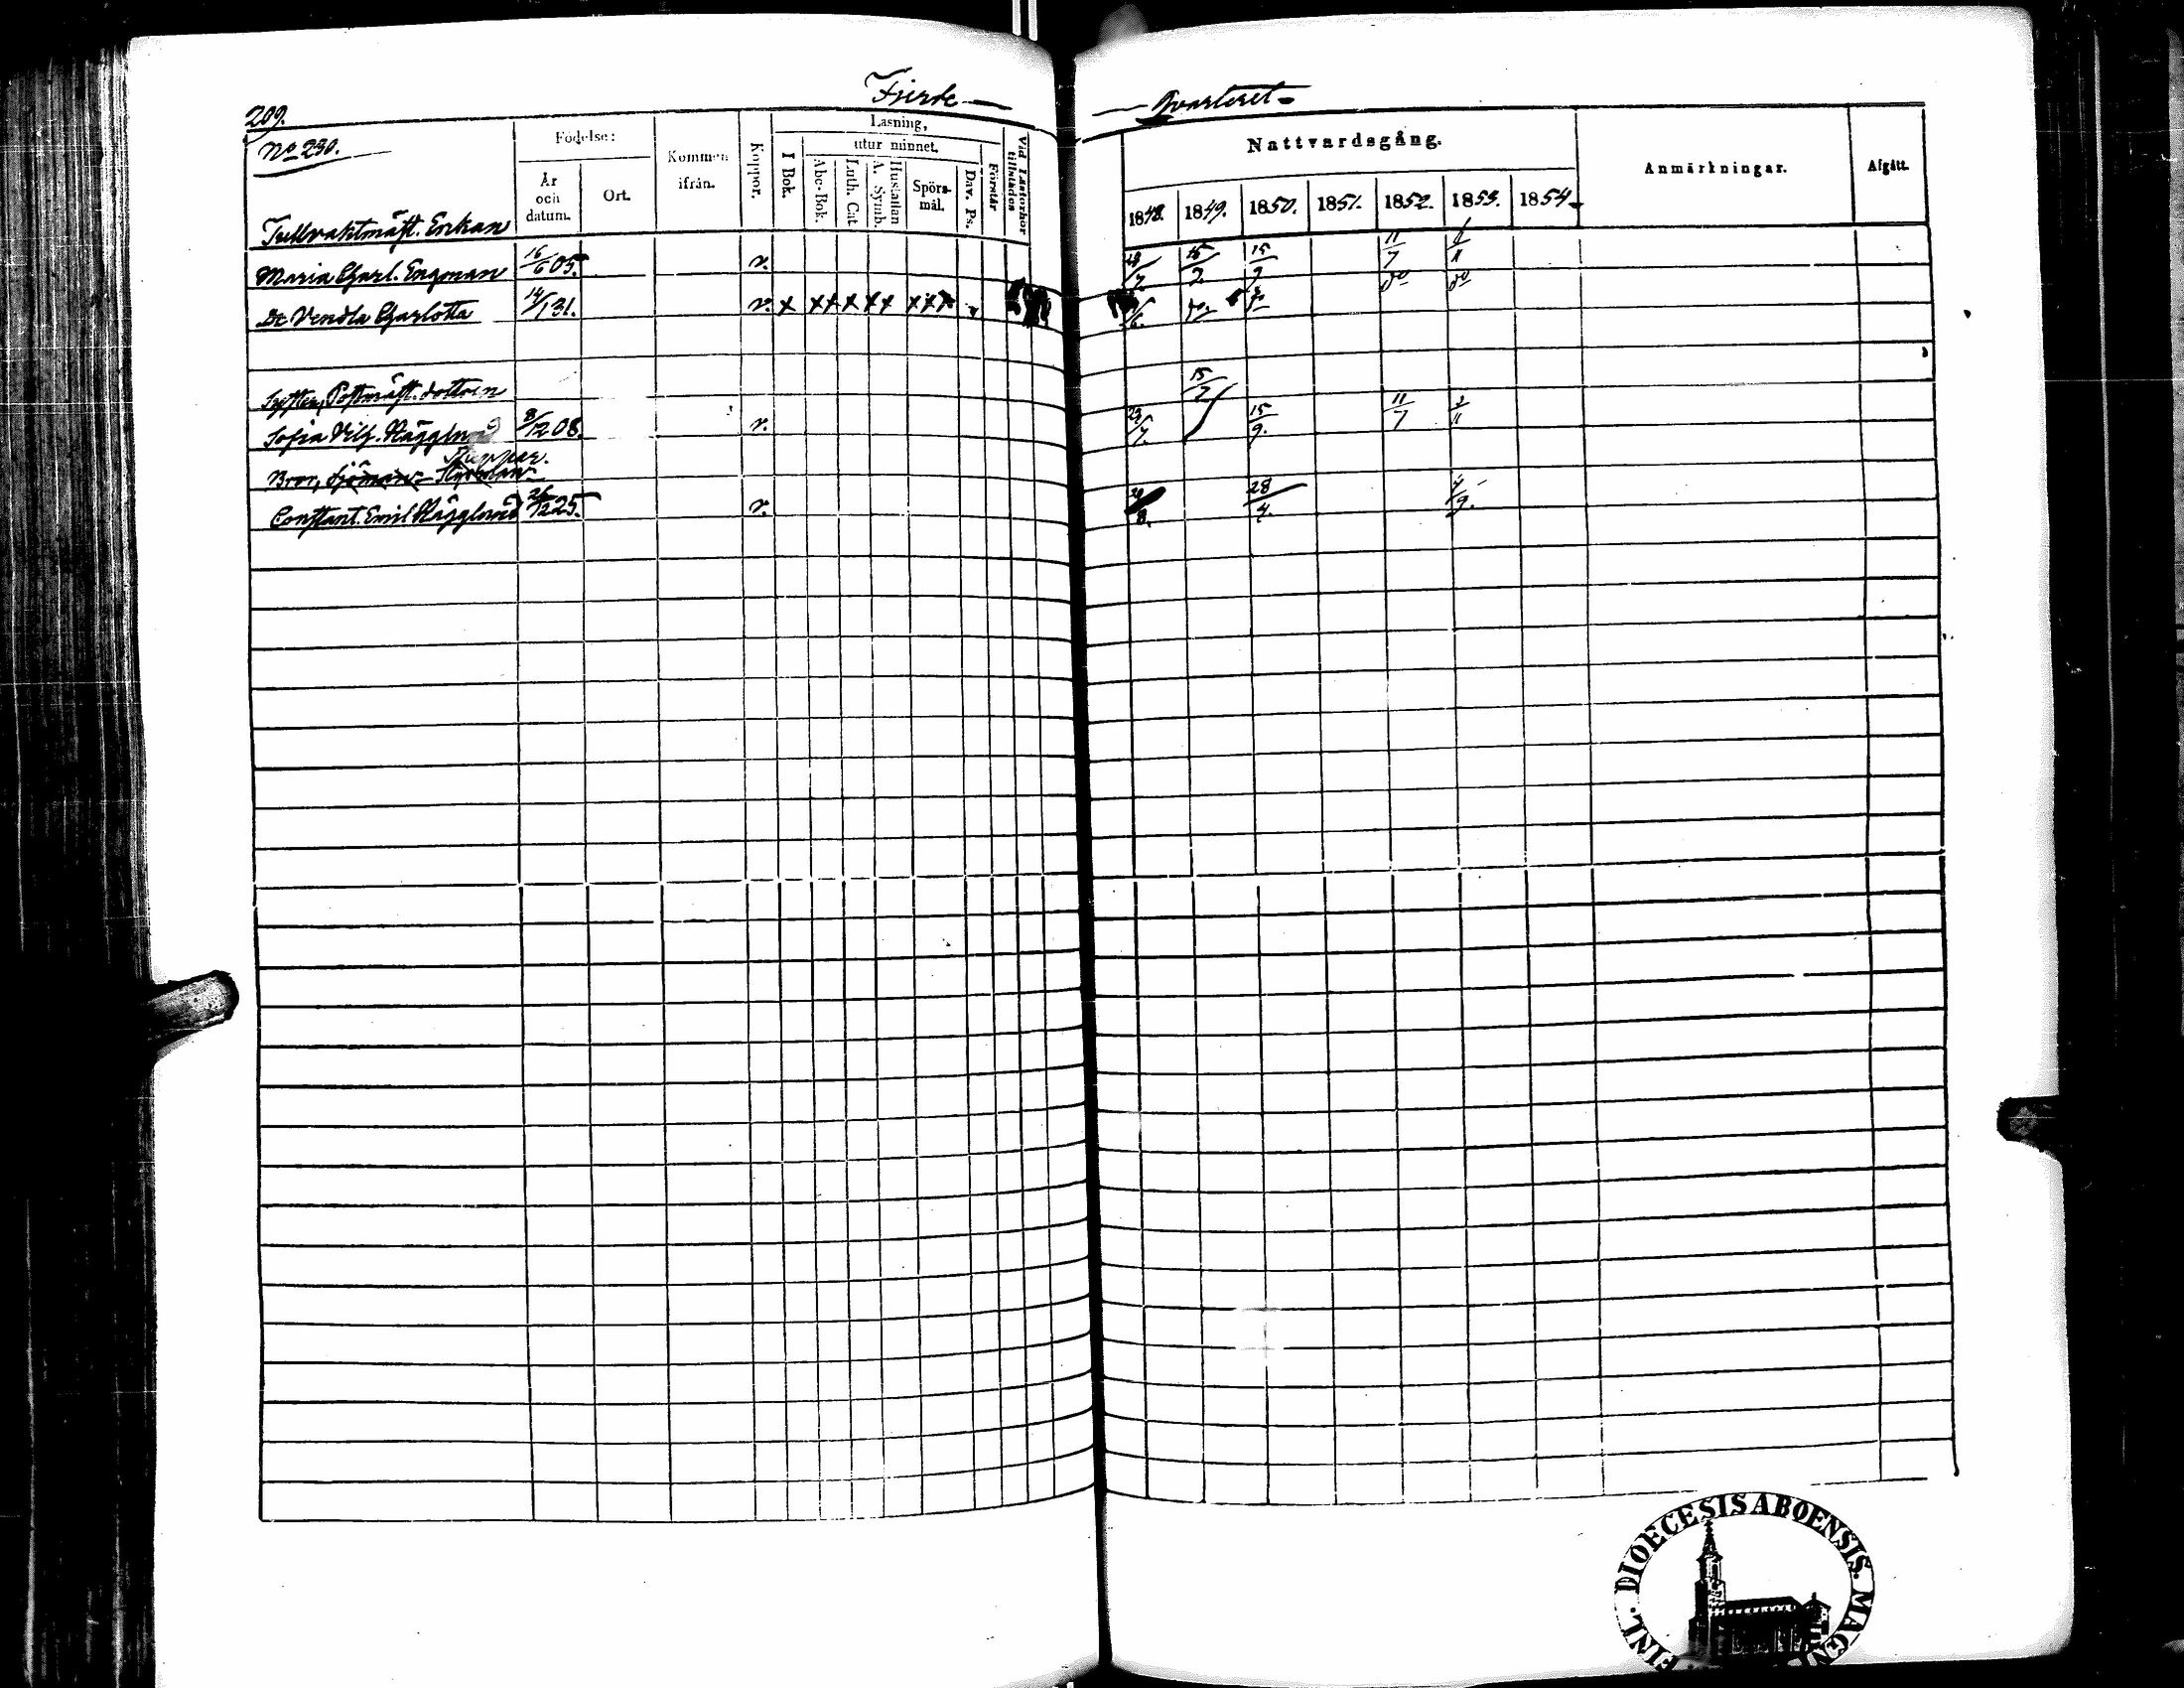 Fjerde — — Qvarteret —
209.
No 230.
Födelse:
År och datum.
Ort.
Kommen ifrån.
Koppor.
Läsning,
I Bok.
utur minnet.
Abc-Bok.
Luth. Cat.
Hustaflan A. Symb.
Spörsmål.
Dav. Ps.
Förstår
Vid Läsförhör tillstädes
Nattvardsgång.
1848. 1849. 1850. 1851. 1852. 1853. 1854.
Anmärkningar.
Afgått.
Tullvaktmäst. Enkan
Maria Charl. Engman 16/6 05. v. 15/7 15/9 11/7
Dr Vendla Charlotta 14/1 31. v. x xx x xx xxx do do
Systern, Postmäst. dottren 15/7
Sofia Vilh. Hägglund 8/12 08. v. 29/7. 15/9. 11/7 2/11
Skeppar.
Bror, Sjöman Styrman
Constant. Emil Hägglund 26/12 25. v. 28/4. /9.
FINL. DIOECESIS ABOENSIS. MAGN